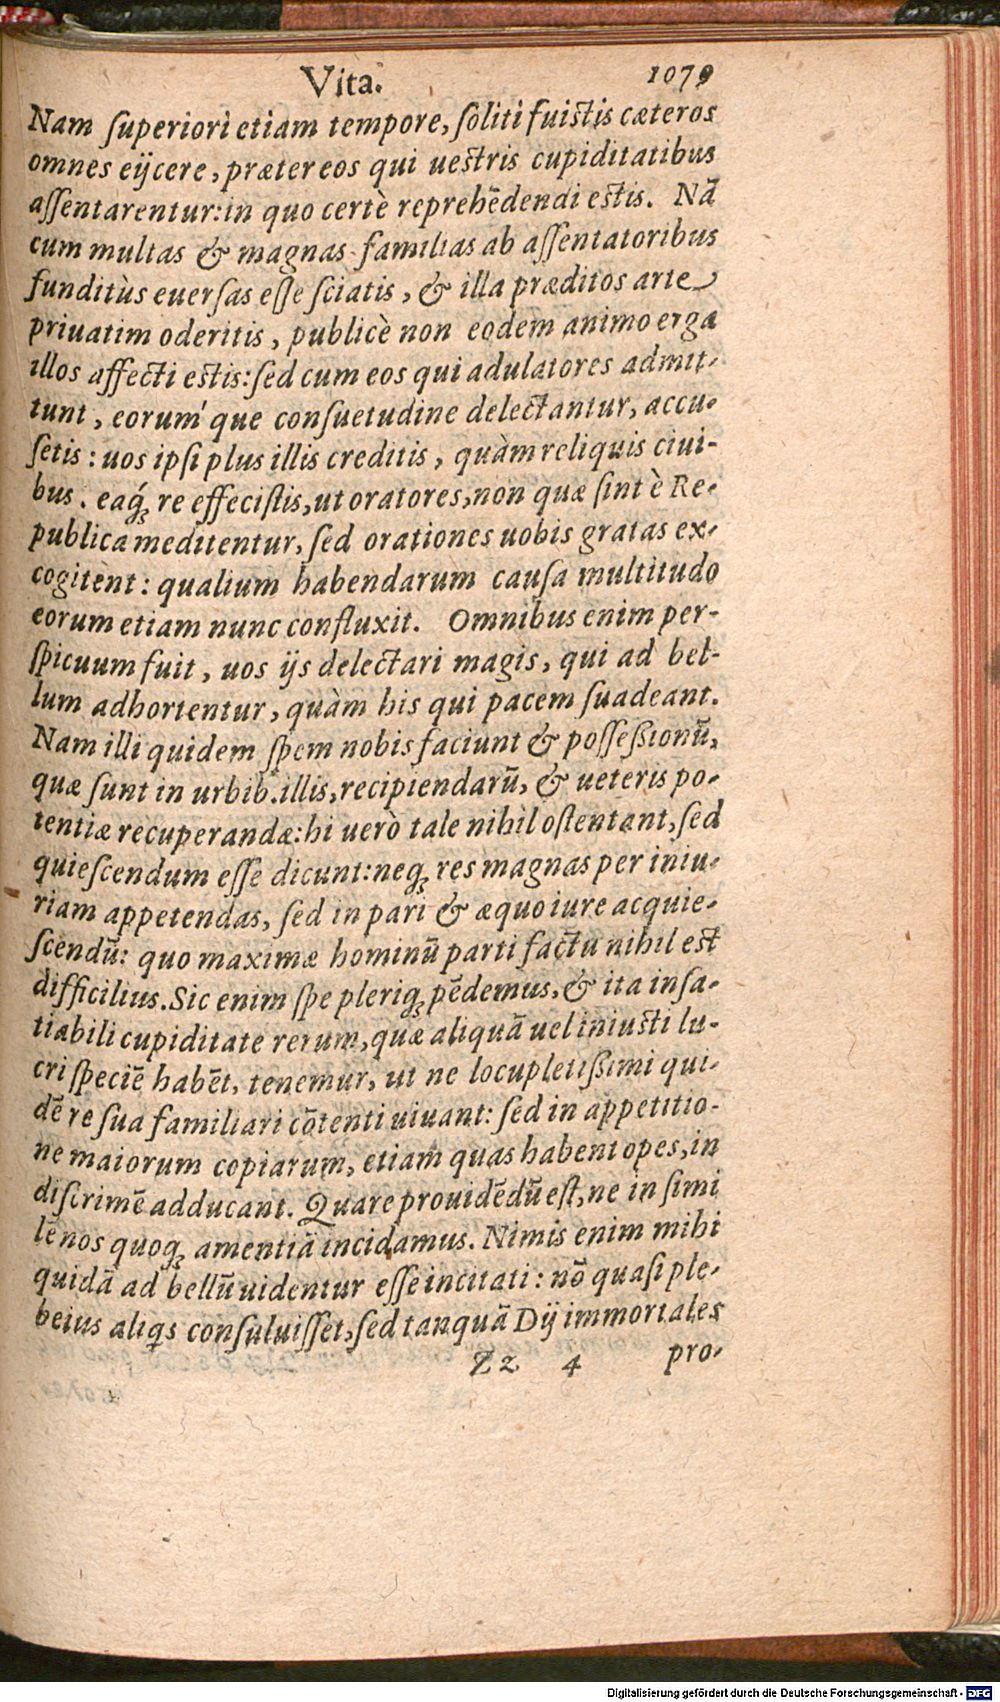 Vita. 1079
Nam ſuperiori etiam tempore, ſoliti fuiſtis cæteros
omnes eijcere, præter eos qui ueſtris cupiditatibus
aſſentarentur: in quo certè reprehēdendi eſtis. Nā
cum multas & magnas familias ab aſſentatoribus
funditùs euerſas eſſe ſciatis, & illa præditos arte
priuatim oderitis, publicè non eodem animo erga
illos affecti eſtis: ſed cum eos qui adulatores admit-
tunt, eorum´que conſuetudine delectantur, accu-
ſetis: uos ipſi plus illis creditis, quàm reliquis ciui-
bus. eaq́; re effeciſtis, ut oratores, non quæ ſint è Re-
publica meditentur, ſed orationes uobis gratas ex-
cogitent: qualium habendarum cauſa multitudo
eorum etiam nunc confluxit. Omnibus enim per-
ſpicuum fuit, uos ijs delectari magis, qui ad bel-
lum adhortentur, quàm his qui pacem ſuadeant.
Nam illi quidem ſpem nobis faciunt & poſſeßionū,
quæ ſunt in urbib. illis, recipiendarū, & ueteris po-
tentiæ recuperandæ: hi uerò tale nihil oſtentant, ſed
quieſcendum eſſe dicunt: neq; res magnas per iniu-
riam appetendas, ſed in pari & æquo iure acquie-
ſcendū: quo maximæ hominū parti factu nihil eſt
difficilius. Sic enim ſpe pleriq; pēdemus, & ita inſa-
tiabili cupiditate rerum, quæ aliquā uel iniuſti lu-
cri ſpeciē habēt, tenemur, ut ne locupletißimi qui-
dē re ſua familiari cōtenti uiuant: ſed in appetitio-
ne maiorum copiarum, etiam quas habent opes, in
diſcrimē adducant. Quare prouidēdū eſt, ne in ſimi
lē nos quoq; amentiā incidamus. Nimis enim mihi
quidā ad bellū uidentur eſſe incitati: nō quaſi ple-
beius aliq̃s conſuluiſſet, ſed tanquā Dij immortales
Zz 4 pro-
Digitalisierung gefördert durch die Deutsche Forschungsgemeinschaft - DFG